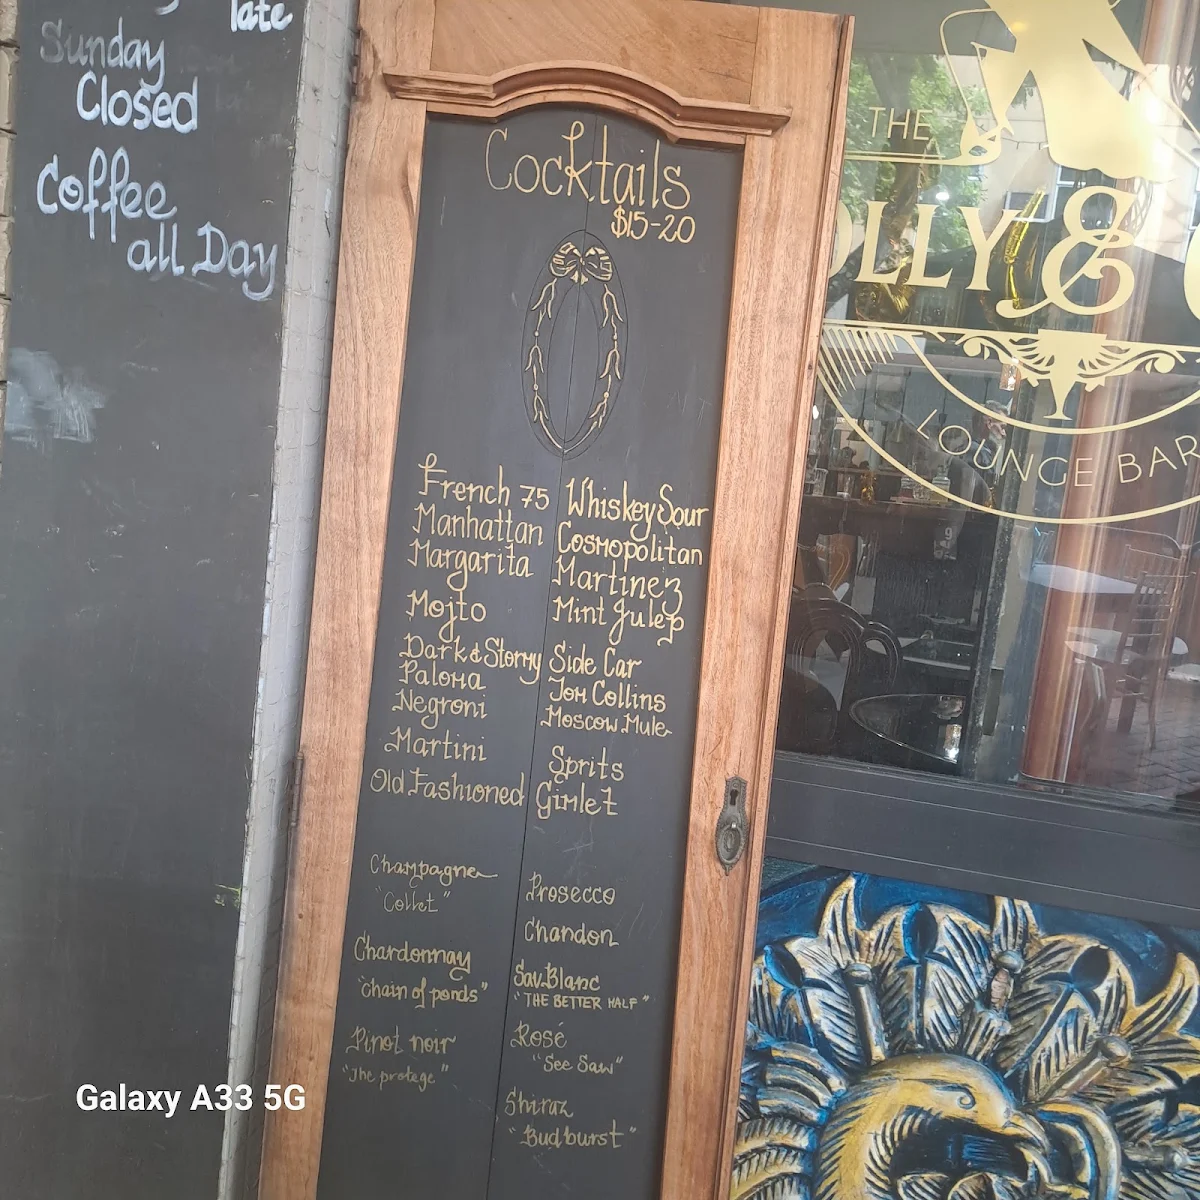 late
Sunday
Closed
Coffee
all Day
Cocktails
$15-20
French 75
Manhattan
Margarita
Mojto
Dark & Stormy
Paloma
Negroni
Martini
Old Fashioned
Whiskey Sour
Cosmopolitan
Martinez
Mint Julep
Side Car
Tom Collins
Moscow Mule
Sprits
Gimlet
Champagne
"Collet"
Chardonnay
"Chain of ponds"
Pinot noir
"The protege"
Prosecco
Chandon
Sav.Blanc
"THE BETTER HALF"
Rosé
"See Saw"
Shiraz
"Budburst"
THE
OLLY &
LOUNGE BAR
Galaxy A33 5G